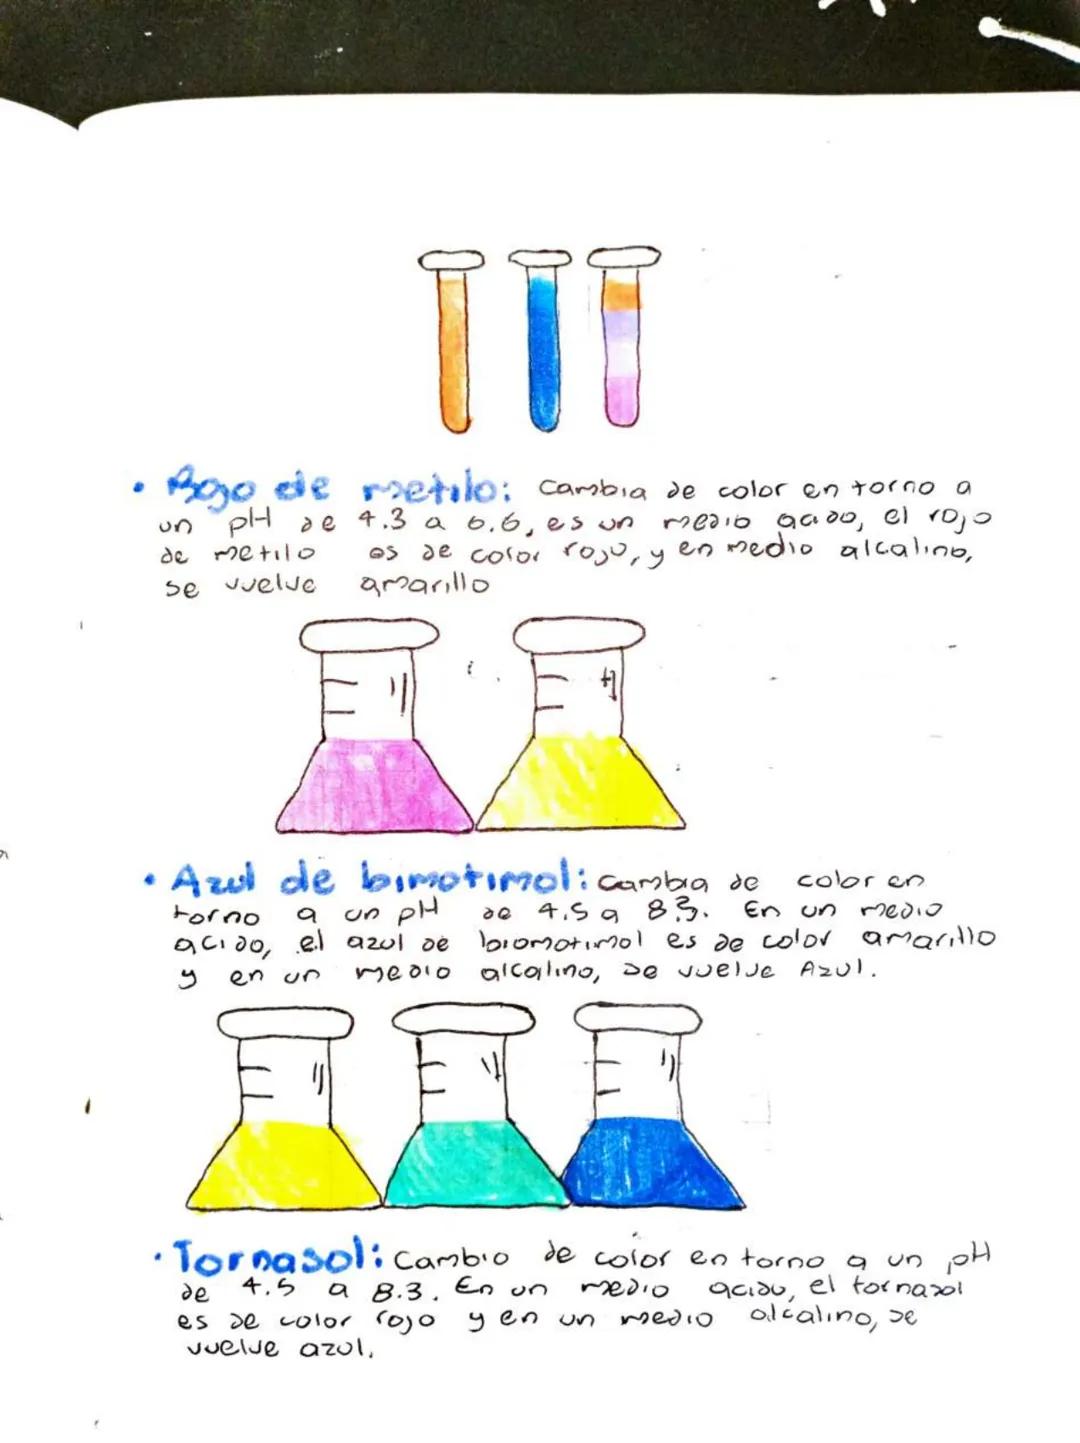 • Rojo de metilo: Cambia de color en torno a
un pH de 4.3 a 6.6, es un medio acido, el rojo
de metilo es de color rojo, y en medio alcalino,
se vuelve amarillo
• Azul de bimotimol: Cambia de color en
torno a un pH de 4.5 a 8.3. En un medio
acido, el azul de biomotimol es de color amarillo
y en un medio alcalino, se vuelve Azul.
• Tornasol: Cambio de color en torno a un pH
de 4.5 a 8.3. En un medio acido, el tornasol
es de color rojo y en un medio alcalino, se
vuelve azul.